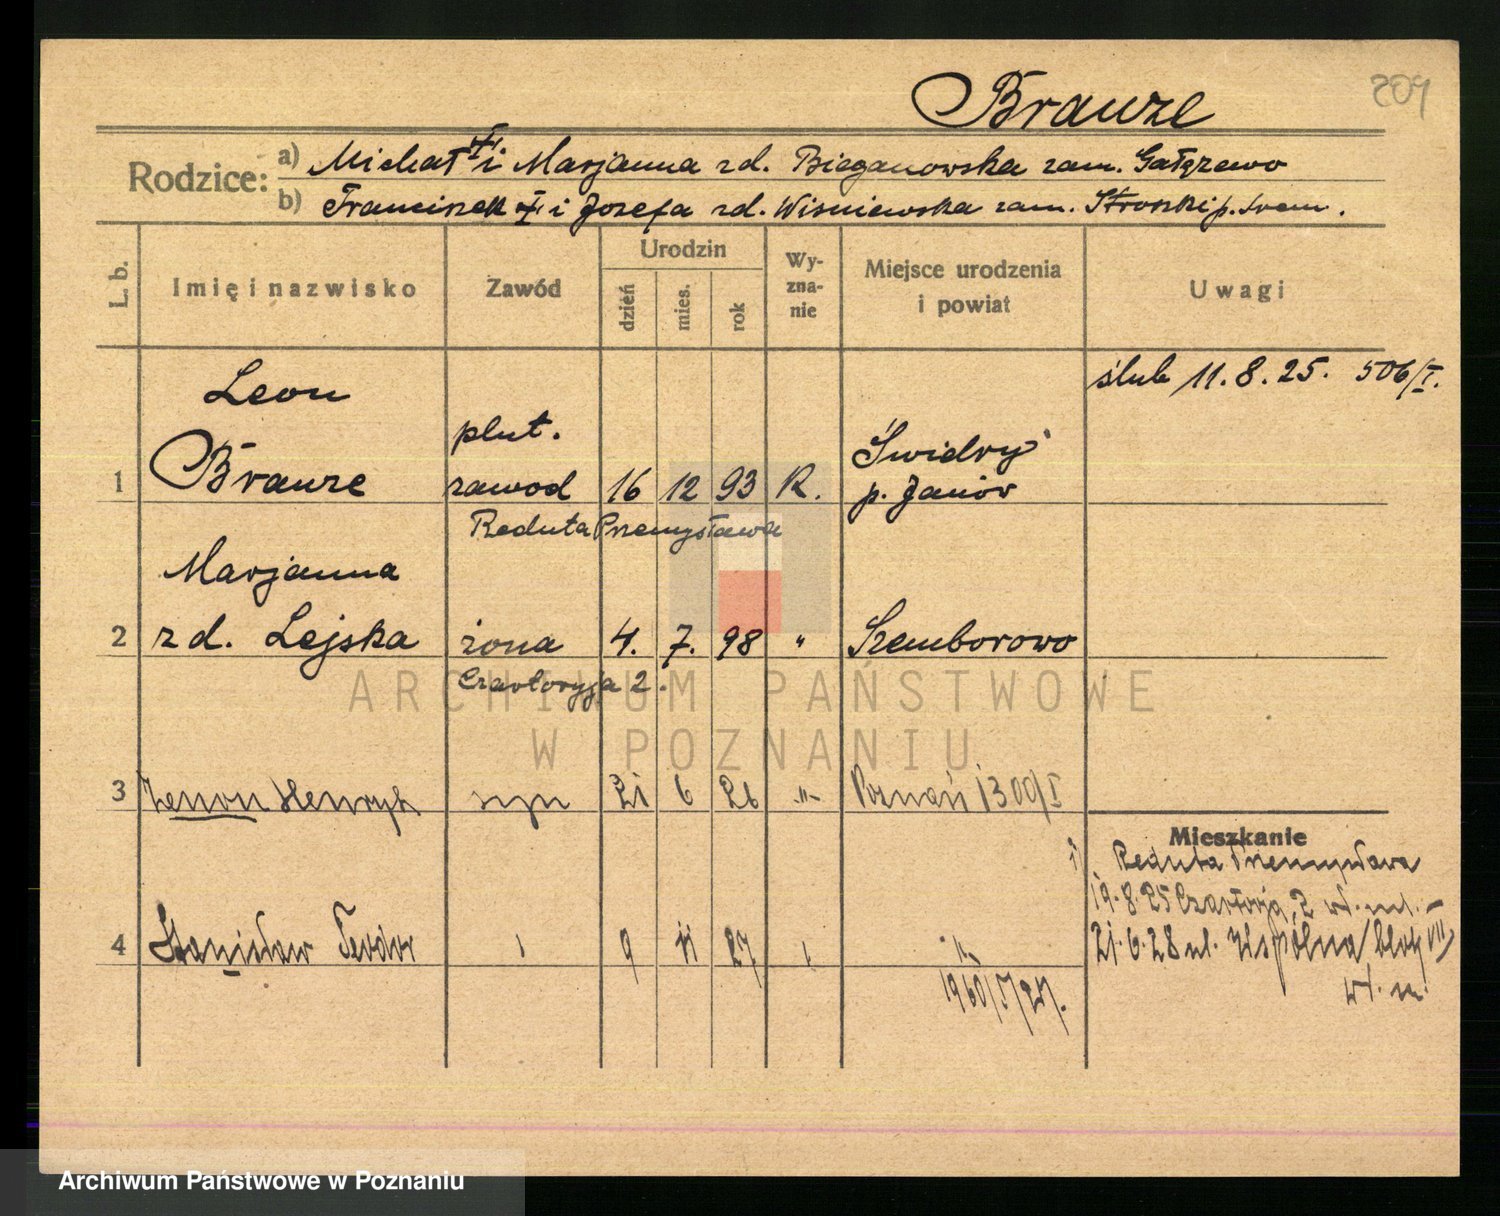 209
Brauze
Rodzice:
a) Michał i Marjanna zd. Bieganowska zam. Gałęzewo
b) Franciszek i Józefa zd. Wiśniewska zam. Stroszki p. Śrem.
L. b.
Imię i nazwisko
Zawód
Urodzin
dzień
mies.
rok
Wy-
zna-
nie
Miejsce urodzenia
i powiat
Uwagi
ślub 11.8.25. 506/I.
1
Leon
Brauze
plut.
zawod
16 12 93 R.
Świdry
p. Janów
Reduta Przemysława
2
Marjanna
zd. Lejska
żona
4. 7. 98 "
Szemborowo
Czartoryja 2.
3 Zenon Henryk syn 21 6 26 -"- Poznań 1300/I
Mieszkanie
Reduta Przemysława
19.8.25 Czartorja 2 wł. m. -
4 Stanisław Teodor 9 11 27
21.6.28 ul. Wspólna blok VII
wł. m.
1960/I/27.
ARCHIWUM PAŃSTWOWE
W POZNANIU
Archiwum Państwowe w Poznaniu